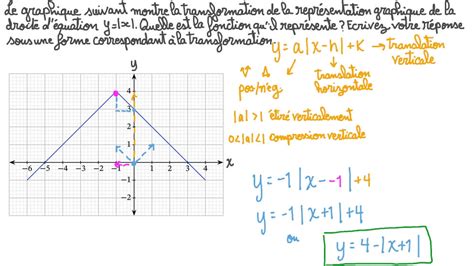 Le graphique suivant montre la transformation de la représentation graphique de la
droite d'équation y=|x|. Quelle est la fonction qu'il représente? Ecrivez votre réponse
sous une forme correspondant à la transformation.
y = a|x-h|+k → translation
verticale
pos/nég
translation
horizontale
|a|>1 étiré verticalement
0<|a|<1 compression verticale
y
4
3
2
1
-6 -5 -4 -3 -2 -1 1 2 3 4 x
-1
-2
y = -1|x--1|+4
y = -1|x+1|+4
ou
y = 4-|x+1|